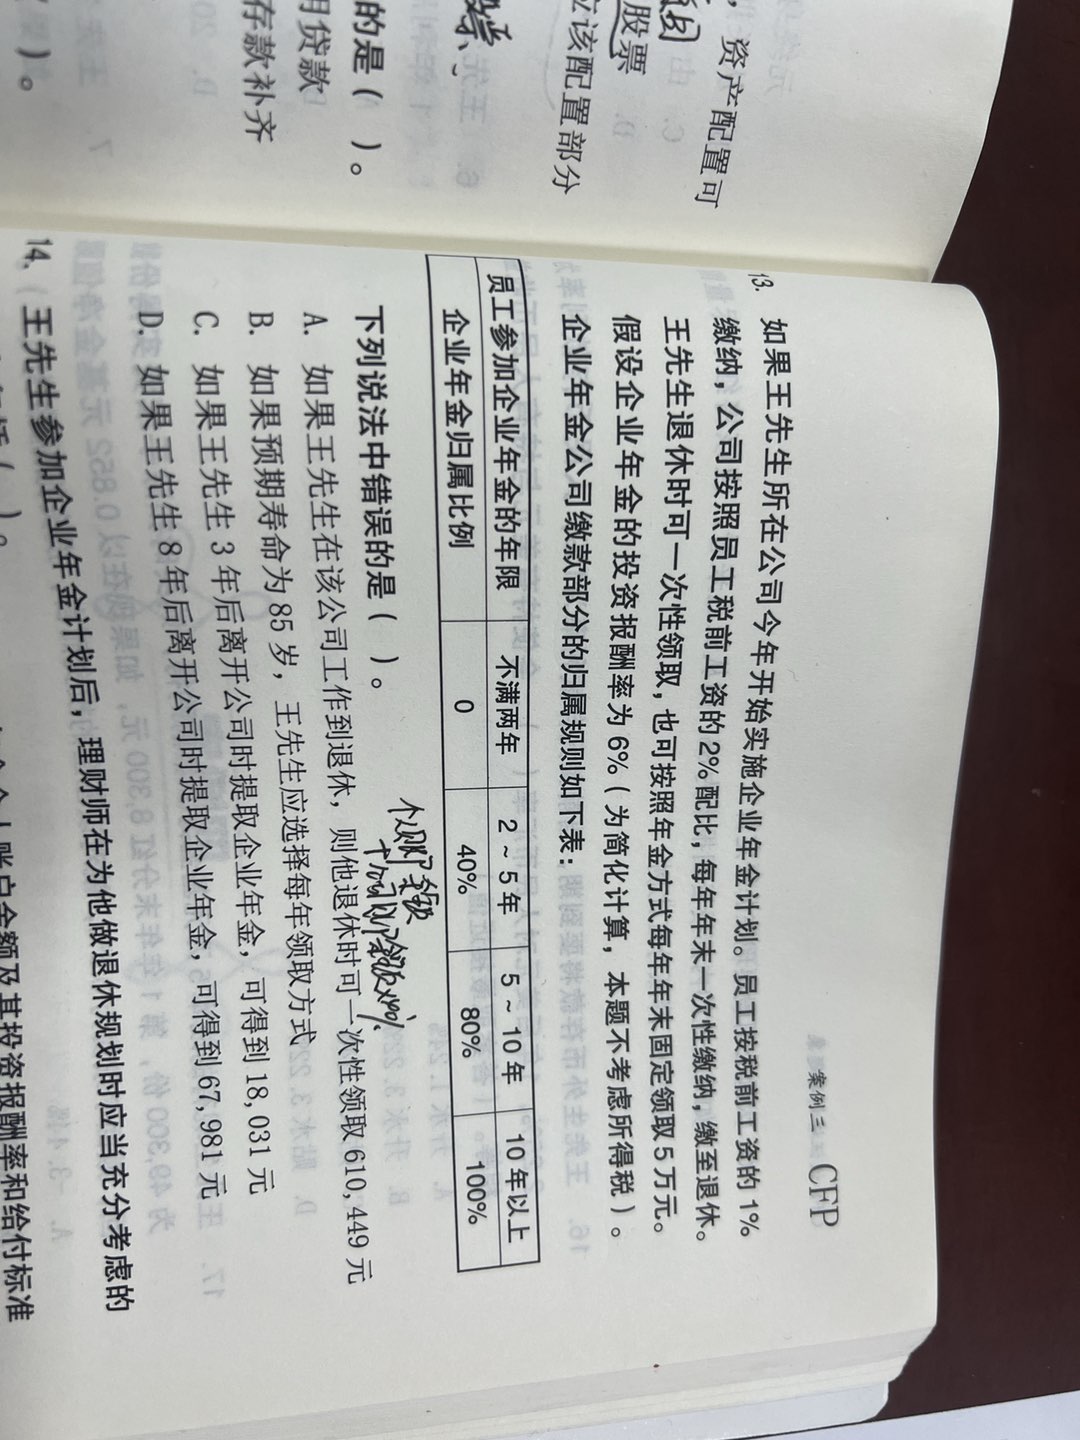 ，资产配置可
股票
应该配置部分
的是（ ）。
用贷款
存款补齐
）。
案例三 CFP
13. 如果王先生所在公司今年开始实施企业年金计划。员工按税前工资的1%
缴纳，公司按照员工税前工资的2%配比，每年年末一次性缴纳，缴至退休。
王先生退休时可一次性领取，也可按照年金方式每年年末固定领取5万元。
假设企业年金的投资报酬率为6%（为简化计算，本题不考虑所得税）。
企业年金公司缴款部分的归属规则如下表：
员工参加企业年金的年限 不满两年 2～5年 5～10年 10年以上
企业年金归属比例 0 40% 80% 100%
下列说法中错误的是（ ）。
A. 如果王先生在该公司工作到退休，则他退休时可一次性领取610,449元
B. 如果预期寿命为85岁，王先生应选择每年领取方式
C. 如果王先生3年后离开公司时提取企业年金，可得到18,031元
D. 如果王先生8年后离开公司时提取企业年金，可得到67,981元
14. 王先生参加企业年金计划后，理财师在为他做退休规划时应当充分考虑的
账户金额及其投资报酬率和给付标准